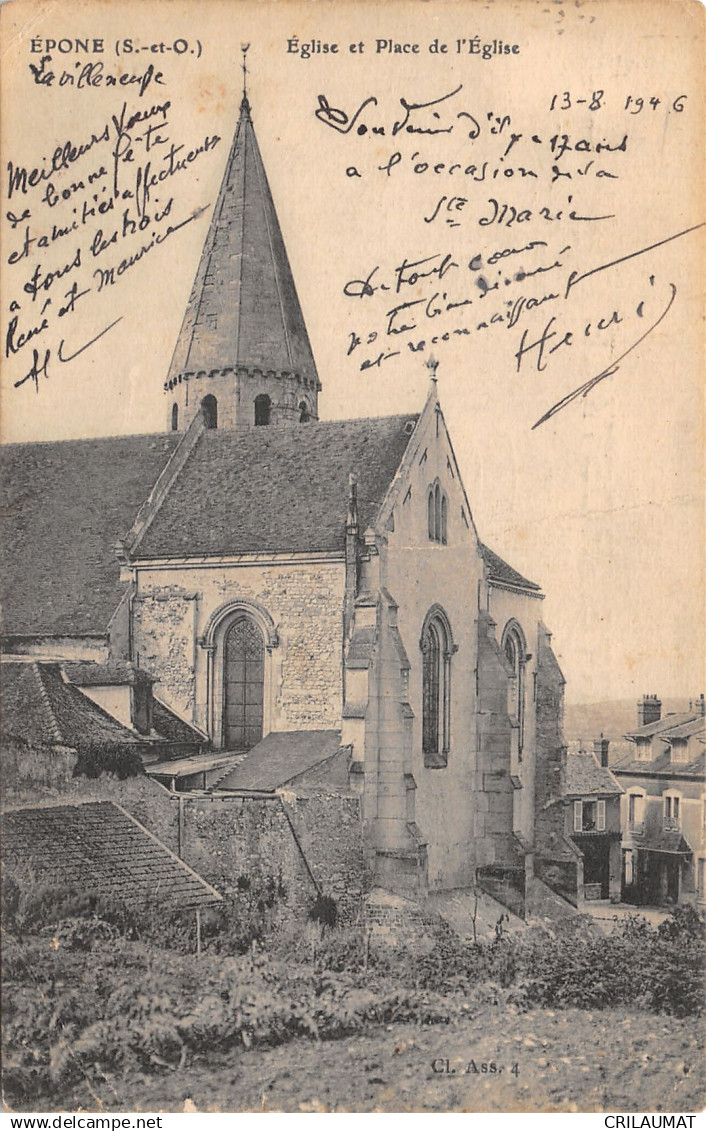 ÉPONE (S.-et-O.)
Église et Place de l'Église
La villeneuve
Meilleurs Vœux
de bonne fête
et amitiés affectueuses
à tous les trois
René et Maurice
13-8 1946
Souvenir d'il y a 17 ans
a l'occasion de la
Ste Marie
De tout cœur
votre bien dévoué
et reconnaissant
Henri
Cl. Ass. 4
CRILAUMAT